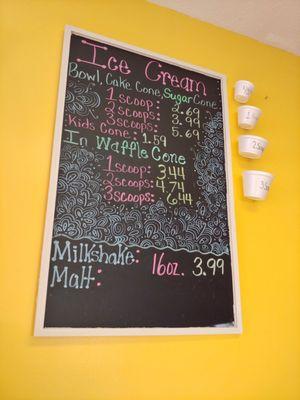 Ice Cream
Bowl, Cake Cone, Sugar Cone
1 scoop: 2.69
2 scoops: 3.99
3 scoops: 5.69
Kids Cone: 1.59
In Waffle Cone
1 scoop: 3.44
2 scoops: 4.74
3 scoops: 6.44
Milkshake: 16oz. 3.99
Malt: